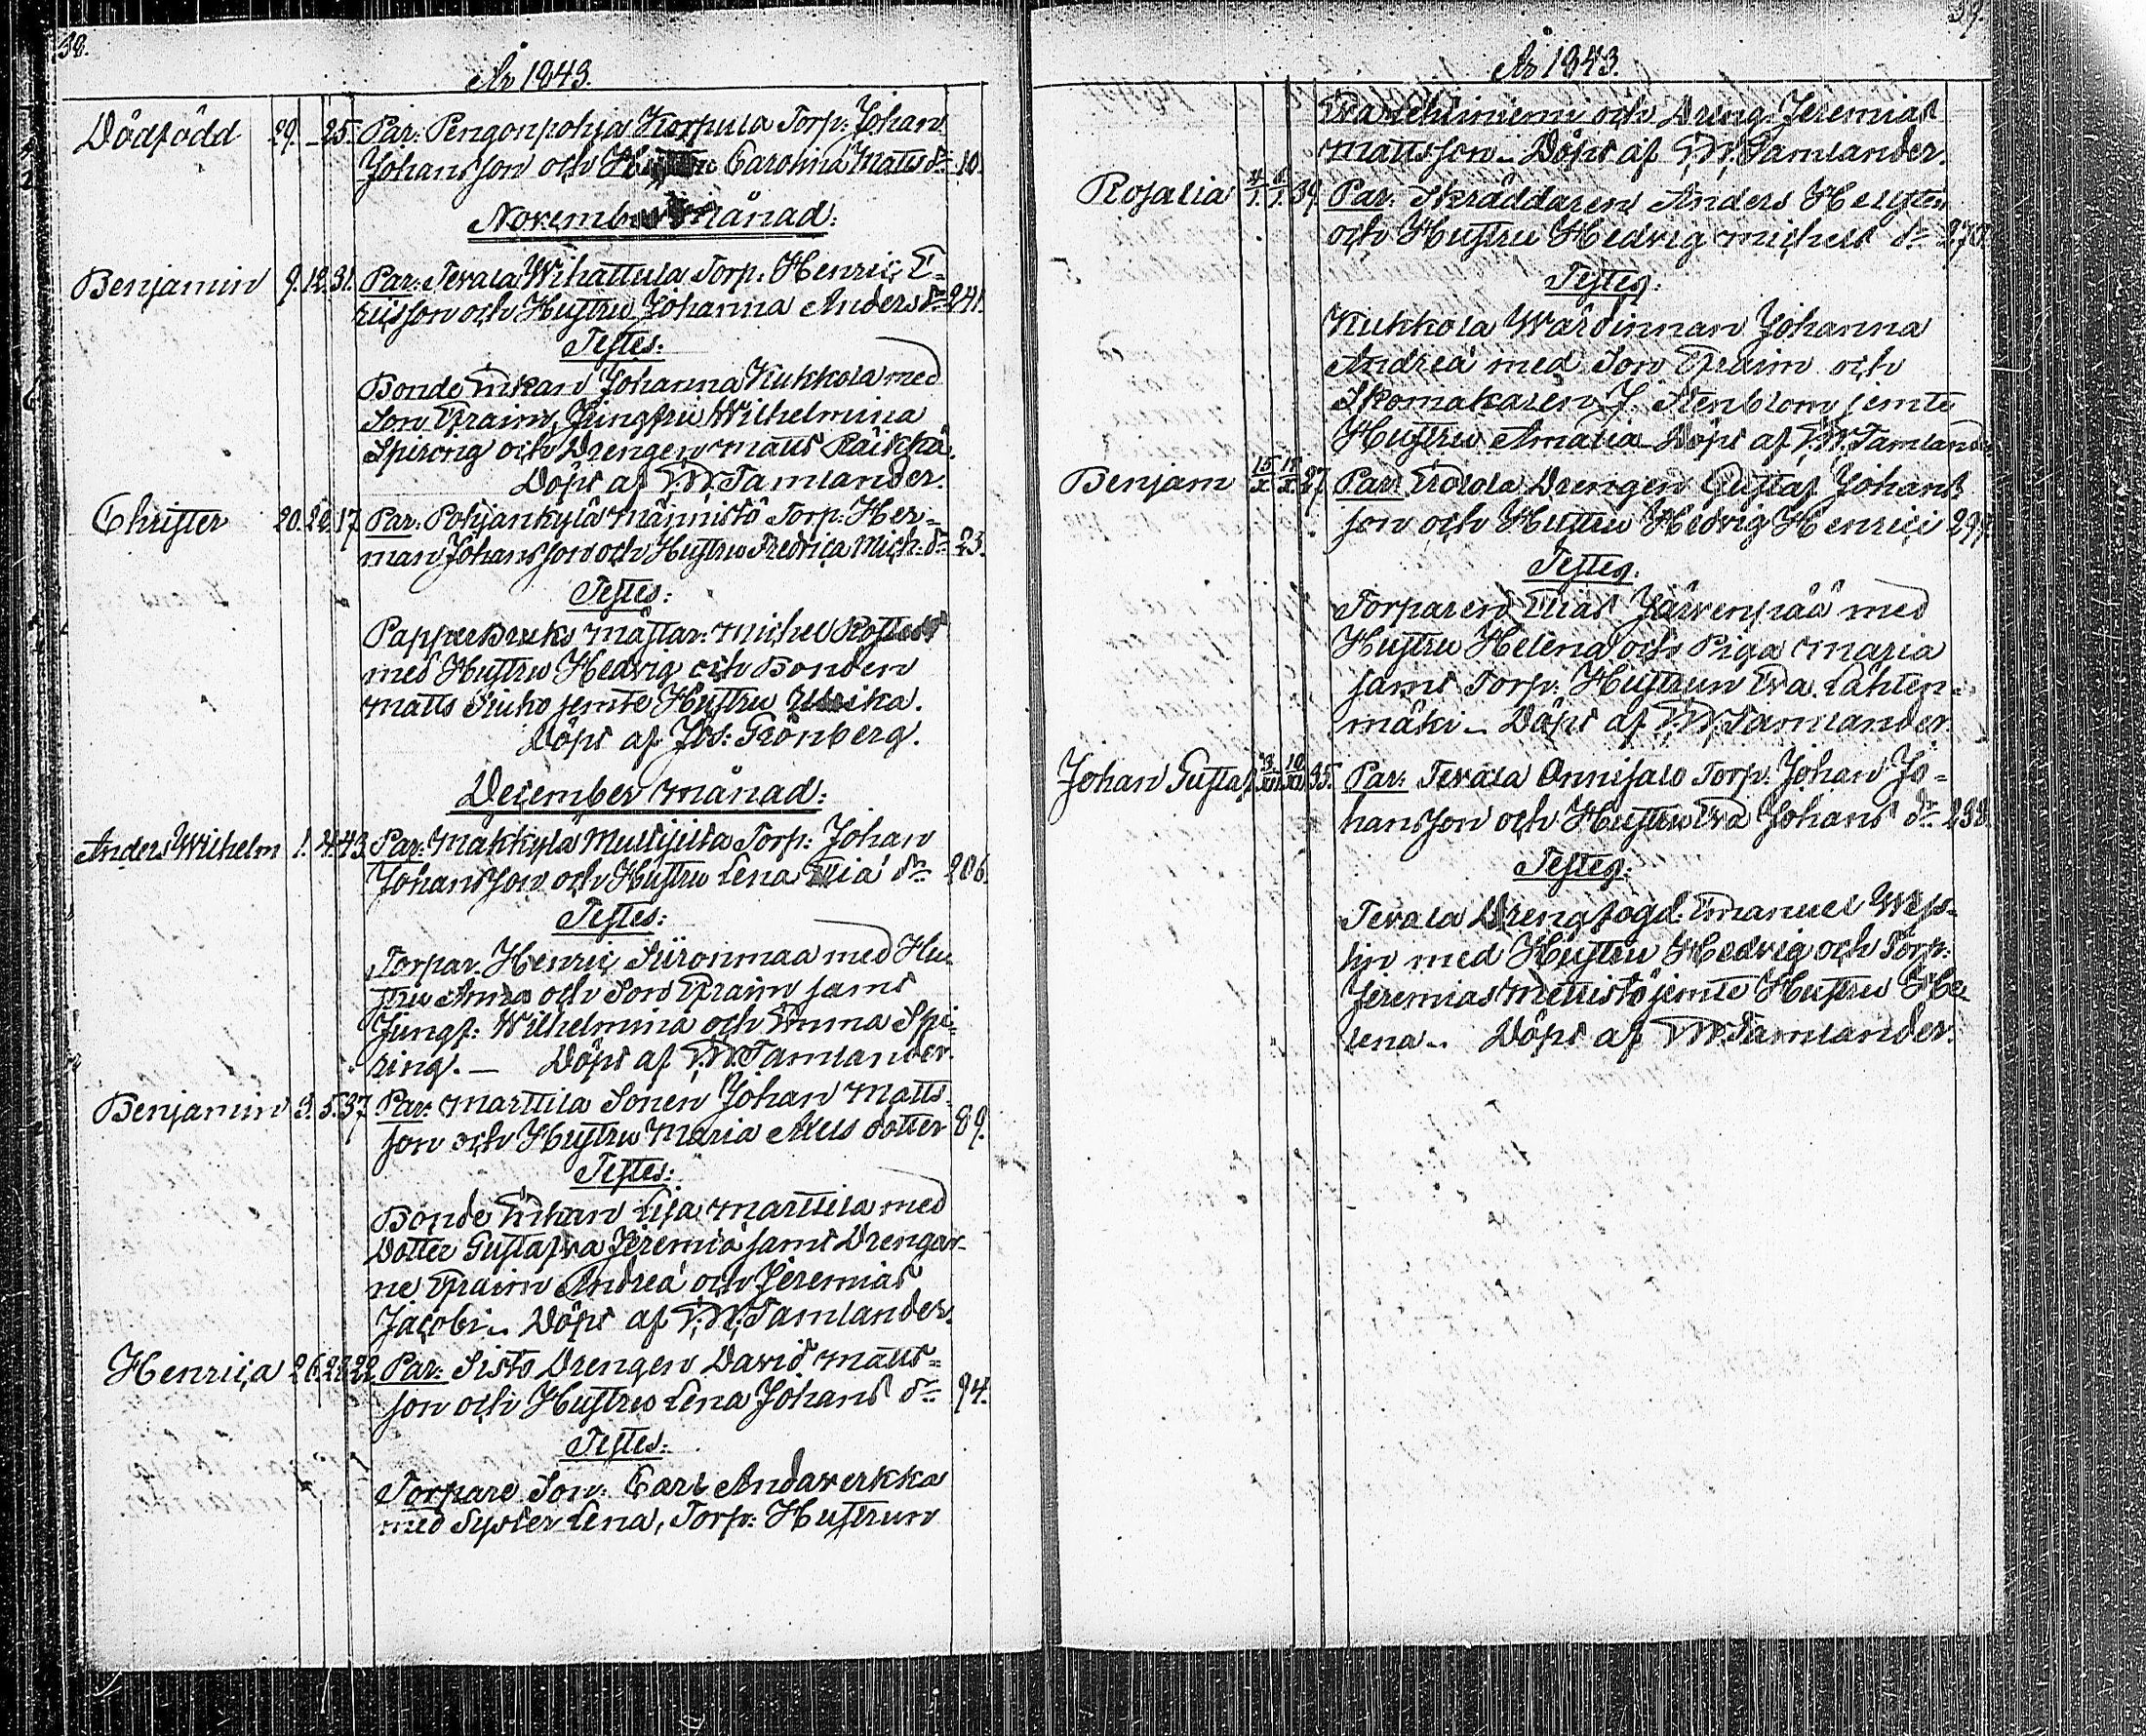 38.
År 1843.
Dödfödd 29. _ 25. Par: Pengonpohja Korpula Torp: Johan
Johansson och Hustru Carolina Matts dr 10.
November Månad:
Benjamin 9. 12. 31. Par: Terala Wihattula Torp: Henric E-
ricsson och Hustru Johanna Anders dr 241.
Testes:
Bonde Enkan Johanna Kukkola med
Son Efraim, Jungfru Wilhelmina
Spiring och Drengen Matts Räikkä.
Döpt af F. W. Tamlander.
Christer 20. 17. Par: Pohjankylä Männistö Torp: Her-
man Johansson och Hustru Fredrica Mich: dr 23.
Testes:
Pappersbruks Mästar: Michel
med Hustru Hedvig och Bonden
Matts jemte Hustru Ulrika.
Döpt af Jos: Grönberg.
December Månad:
Anders Wilhelm 1. 4. 43. Par: Makkylä Multisilta Torp: Johan
Johansson och Hustru Lena Eliæ dr 206.
Testes:
Torpar. Henric Siironmaa med Hu-
stru Anna och Son Efraim samt
Jungf: Wilhelmina och Emma Spi-
ring. — Döpt af F. W. Tamlander.
Benjamin 3. 5. 37. Par: Marttila Sonen Johan Matts-
son och Hustru Maria dotter 89.
Testes:
Bonde Enkan Lisa Marttila med
Dotter Gustafva Jeremiæ samt Drengar-
ne Efraim Andreæ och Jeremias
Jacobi. Döpt af F. W. Tamlander.
Henrica 26. 27. 22. Par: Sisto Drengen David Matts-
son och Hustru Lena Johans dr 94.
Testes:
Torpare Son: Carl Andaverkka
med Syster Lena, Torp: Hustrun
39.
År 1843.
Eva och Dreng: Jeremias
Mattsson. Döpt af F. W. Tamlander.
Rosalia 39. Par: Skräddaren Anders
och Hustru Hedvig Michels dr 270.
Testes:
Kukkola Wärdinnan Johanna
Andreæ med Son Efraim och
Skomakaren J. Stenblom jemte
Hustru Amalia. Döpt af F. W. Tamlander
Benjam 15/X 27. Par: Drengen Gustaf Johans-
son och Hustru Hedvig Henrici 297.
Testes:
Torparen Elias Järvenpää med
Hustru Helena och Piga Maria
samt Torp: Hustrun Eva Lähten-
mäki. Döpt af F. W. Tamlander
Johan Gustaf 3/XII 10/XII 35. Par: Terala Onnisalo Torp: Johan Jo-
hansson och Hustru Eva Johans dr 232.
Testes:
Terala Drengfogd: Emanuel Wess-
lin med Hustru Hedvig och Torp:
Jeremias Mellistö jemte Hustru He-
lena. Döpt af F. W. Tamlander.